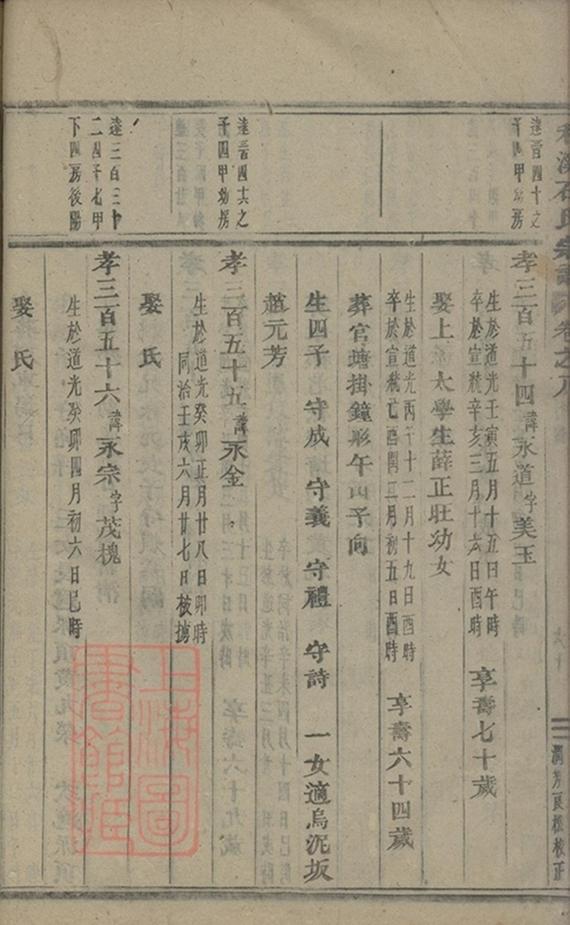 石氏宗譜 卷之八
潤芳良樵校正
達晉四十之
子四甲幼房
孝三百五十四諱永道字美玉
生於道光壬寅五月十五日午時
卒於宣統辛亥三月十六日酉時
享壽七十歲
娶上 太學生薛正旺幼女
生於道光丙午十二月十九日酉時
卒於宣統己酉閏二月初五日酉時
享壽六十四歲
葬官塘掛鐘形午山子向
生四子 守成 守義 守禮 守詩 一女適烏泥坂
趙元芳
達晉四其之
子四甲幼房
孝三百五十五諱永金
生於道光癸卯正月廿八日卯時
同治壬戌六月廿七日被擄
娶 氏
達三百三十
二四子七甲
下四房後陽
孝三百五十六諱永宗字茂槐
生於道光癸卯四月初六日巳時
娶 氏
上海圖
書館藏